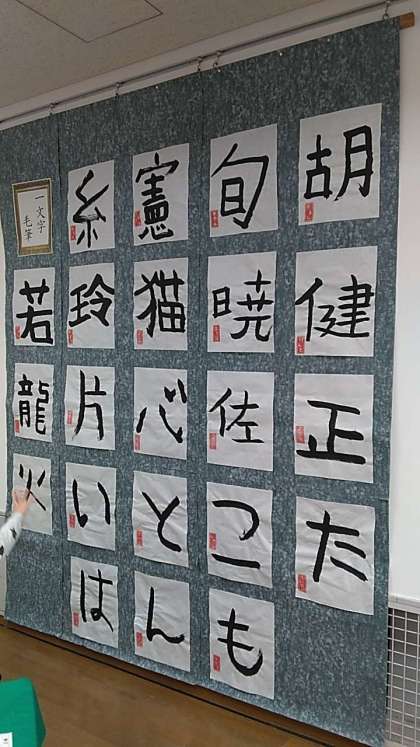 胡
健
正
た
旬
暁
佐
こ
も
憲
猫
心
と
ん
糸
玲
片
い
は
一文字
毛筆
若
龍
火